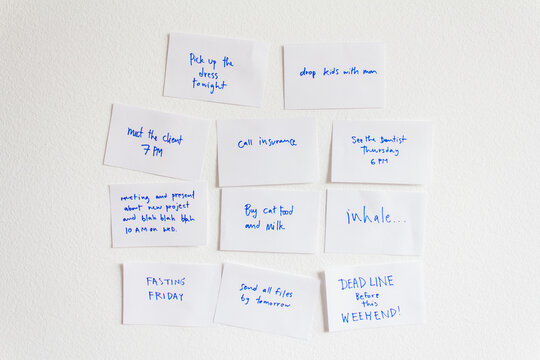 Pick up the
dress
tonight
drop kids with mom
meet the client
7 PM
call insurance
See the dentist
Thursday
6 PM
meeting and present
about new project
and blah blah blah
10 AM on WED.
Buy cat food
and milk
inhale...
FASTING
FRIDAY
send all files
by tomorrow
DEADLINE
Before
this
WEEKEND!